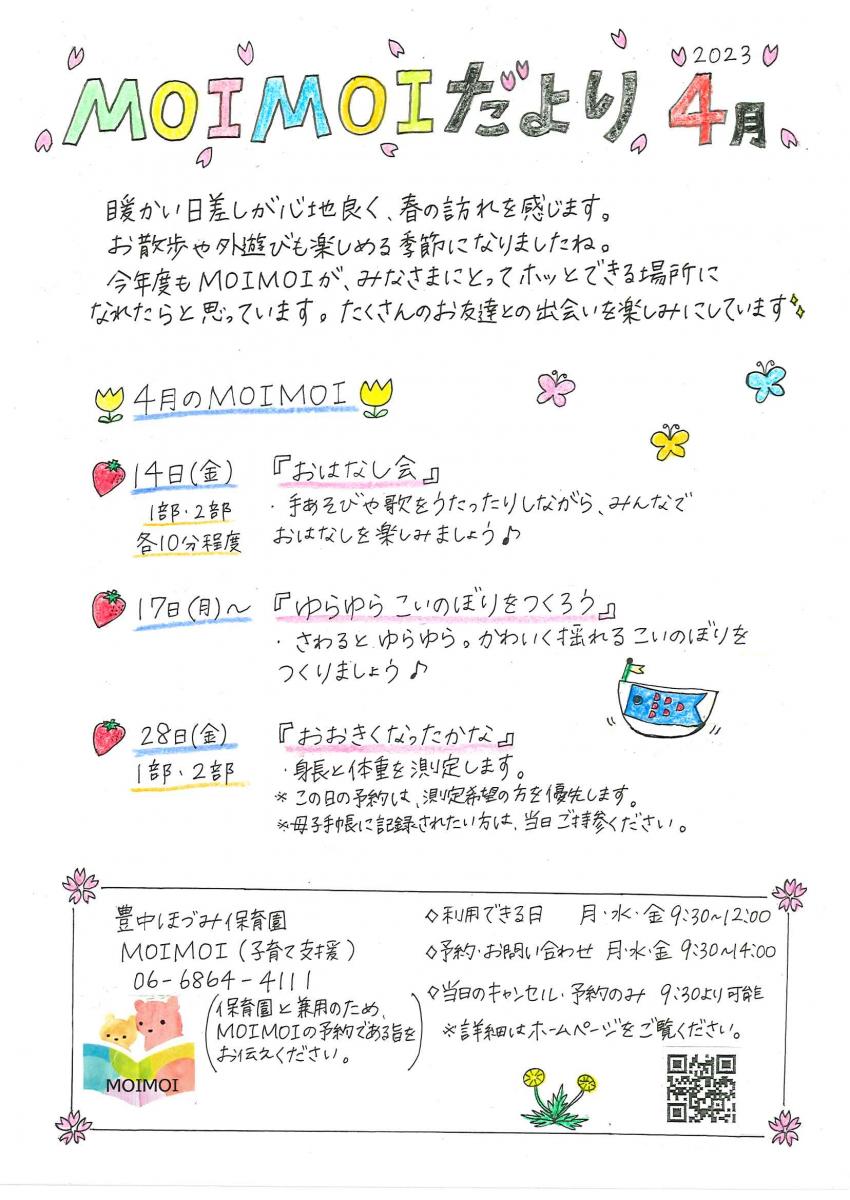 2023
MOIMOIだより 4月
暖かい日差しが心地良く、春の訪れを感じます。
お散歩や外遊びも楽しめる季節になりましたね。
今年度もMOIMOIが、みなさまにとってホッとできる場所に
なれたらと思っています。たくさんのお友達との出会いを楽しみにしています
4月のMOIMOI
14日(金) 『おはなし会』
1部・2部
各10分程度
・手あそびや歌をうたったりしながら、みんなで
おはなしを楽しみましょう♪
17日(月)～ 『ゆらゆら こいのぼりをつくろう』
・さわると ゆらゆら。かわいく揺れる こいのぼりを
つくりましょう♪
28日(金) 『おおきくなったかな』
1部・2部
・身長と体重を測定します。
※この日の予約は、測定希望の方を優先します。
※母子手帳に記録されたい方は、当日ご持参ください。
豊中ほづみ保育園
MOIMOI(子育て支援)
06-6864-4111
(保育園と兼用のため、
MOIMOIの予約である旨を
お伝えください。)
MOIMOI
◇利用できる日 月・水・金 9:30~12:00
◇予約・お問い合わせ 月・水・金 9:30~14:00
◇当日のキャンセル・予約のみ 9:30より可能
※詳細はホームページをご覧ください。